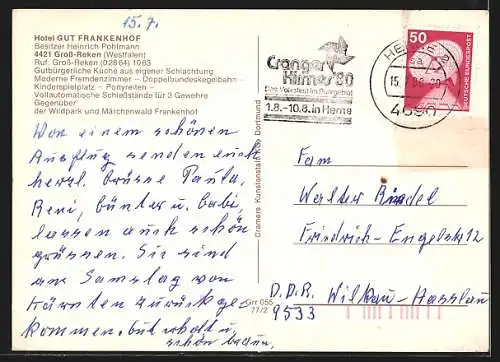 15.7.
Hotel GUT FRANKENHOF
Besitzer Heinrich Pohlmann
4421 Groß-Reken (Westfalen)
Ruf: Groß-Reken (02864) 1063
Gutbürgerliche Küche aus eigener Schlachtung
Moderne Fremdenzimmer – Doppelbundeskegelbahn
Kinderspielplatz – Ponyreiten –
Vollautomatische Schießstände für 3 Gewehre
Gegenüber
der Wildpark und Märchenwald Frankenhof
Von einem schönen
Ausflug senden euch
herzl. Grüsse Paula,
Reni, Günter u. Gabi
lassen auch schön
grüssen. Sie sind
am Samstag von
Kärnten zurückge
kommen. Gut erholt u.
schön braun.
Cramers Kunstanstalt KG, Dortmund
Grr 055
77/2
Cranger
Kirmes '80
Das Volksfest im Ruhrgebiet
1.8.–10.8. in Herne
HERNE 2
15.
4690
50
DEUTSCHE BUNDESPOST
Fam
Walter Riedel
Friedrich-Engelstr 12
D.D.R. Wilkau-Hasslau
9533